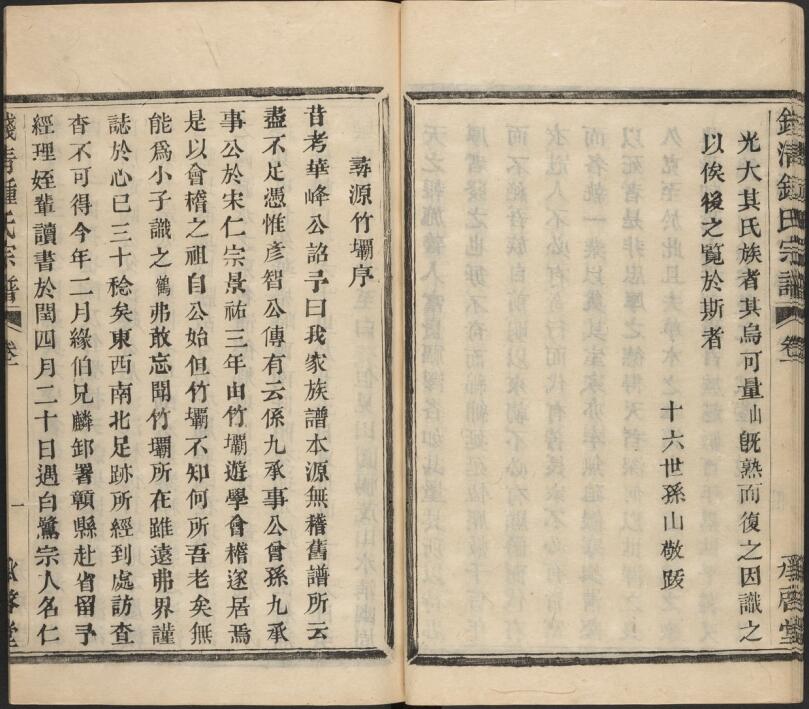 錢淸鍾氏宗譜
卷一
承啓堂
光大其氏族者其烏可量山旣熟而復之因識之
以俟後之覽於斯者
十六世孫山敬跋
尋源竹壩序
昔考華峰公詔予曰我家族譜本源無稽舊譜所云
盡不足憑惟彥智公傳有云係九承事公曾孫九承
事公於宋仁宗景祐三年由竹壩遊學會稽遂居焉
是以會稽之祖自公始但竹壩不知何所吾老矣無
能爲小子識之鶴弗敢忘聞竹壩所在雖遠弗界謹
誌於心已三十稔矣東西南北足跡所經到處訪查
杳不可得今年二月緣伯兄麟卸署贛縣赴省留予
經理姪輩讀書於閏四月二十日遇白鷺宗人名仁
錢淸鍾氏宗譜
卷一
一
承啓堂